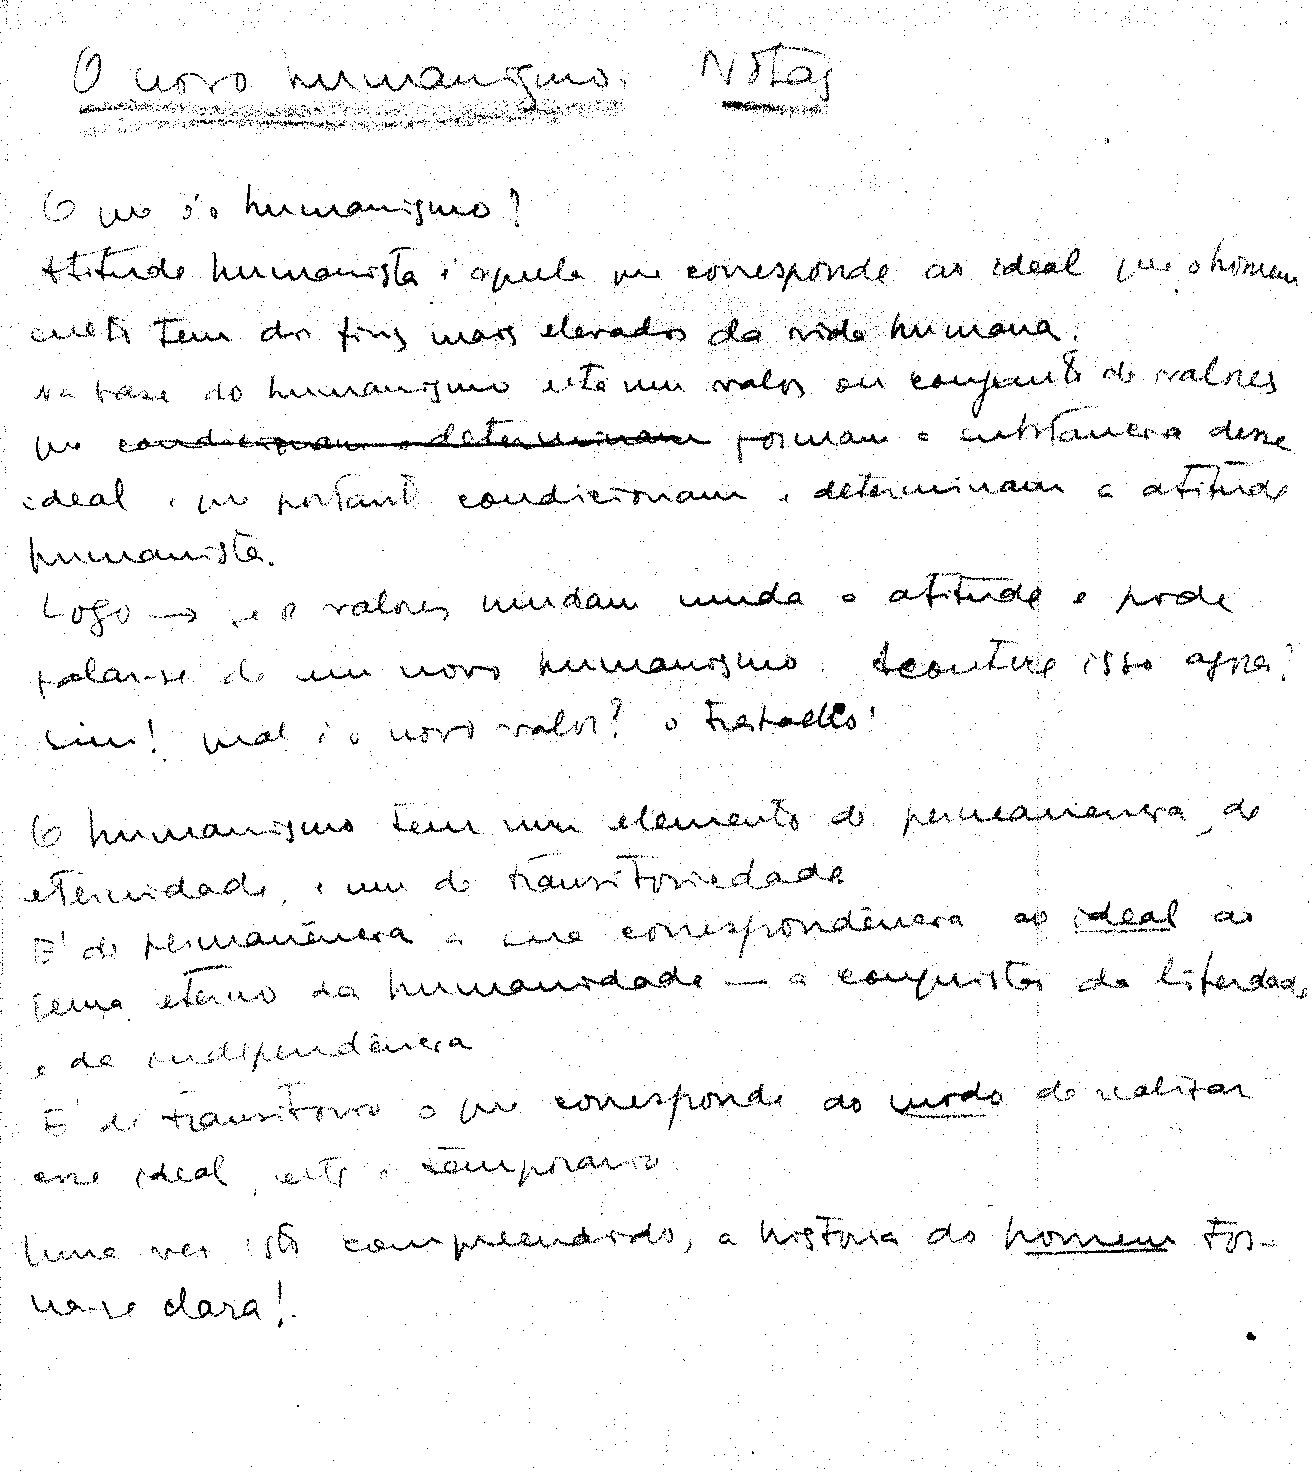 O novo humanismo. Notas
O que é o humanismo?
Atitude humanista é aquela que corresponde ao ideal que o homem
culto tem dos fins mais elevados da vida humana.
Na base do humanismo está um valor ou conjunto de valores
que condicionam e determinam formam a substância desse
ideal e que portanto condicionam e determinam a atitude
humanista.
Logo → se os valores mudam muda a atitude e pode
falar-se de um novo humanismo. Acontece isso agora?
Sim! Qual é o novo valor? o trabalho!
O humanismo tem um elemento de permanência, de
eternidade, e um de transitoriedade
É de permanência a sua correspondência ao ideal ao
tema eterno da humanidade — a conquista da liberdade
e da independência
É de transitório o que corresponde ao modo de realizar
esse ideal, este é temporário
Uma vez isto compreendido, a história do homem tor-
na-se clara!